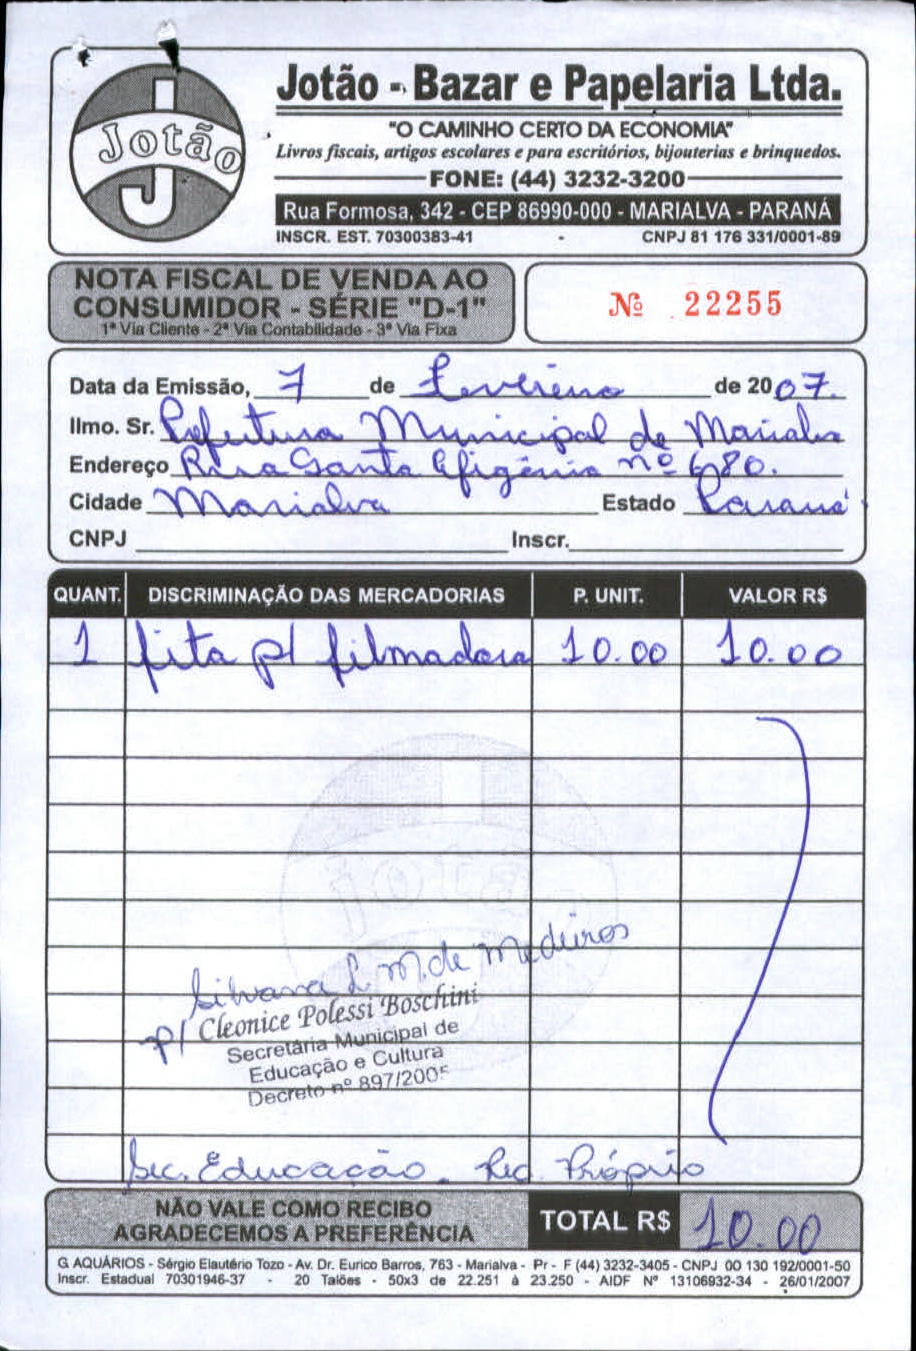 Jotão
Jotão - Bazar e Papelaria Ltda.
"O CAMINHO CERTO DA ECONOMIA"
Livros fiscais, artigos escolares e para escritórios, bijouterias e brinquedos.
FONE: (44) 3232-3200
Rua Formosa, 342 - CEP 86990-000 - MARIALVA - PARANÁ
INSCR. EST. 70300383-41 CNPJ 81 176 331/0001-89
NOTA FISCAL DE VENDA AO
CONSUMIDOR - SÉRIE "D-1"
1ª Via Cliente - 2ª Via Contabilidade - 3ª Via Fixa
Nº 22255
Data da Emissão, 7 de Fevereiro de 2007.
Ilmo. Sr. Prefeitura Municipal de Marialva
Endereço Rua Santa Efigênia nº 680.
Cidade Marialva Estado Paraná
CNPJ Inscr.
QUANT. DISCRIMINAÇÃO DAS MERCADORIAS P. UNIT. VALOR R$
1 fita p/ filmadora 10.00 10.00
Jotão
Silvana L M. de Medeiros
p/ Cleonice Polessi Boschini
Secretária Municipal de
Educação e Cultura
Decreto nº 897/2005
Sec. Educação. Rec. Próprio
NÃO VALE COMO RECIBO
AGRADECEMOS A PREFERÊNCIA
TOTAL R$ 10.00
G AQUÁRIOS - Sérgio Elautério Tozo - Av. Dr. Eurico Barros, 763 - Marialva - Pr - F (44) 3232-3405 - CNPJ 00 130 192/0001-50
Inscr. Estadual 70301946-37 - 20 Talões - 50x3 de 22.251 à 23.250 - AIDF Nº 13106932-34 - 26/01/2007